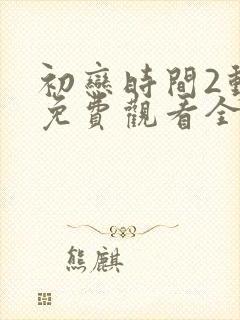 初戀時間2動
免費觀看全
熊麒